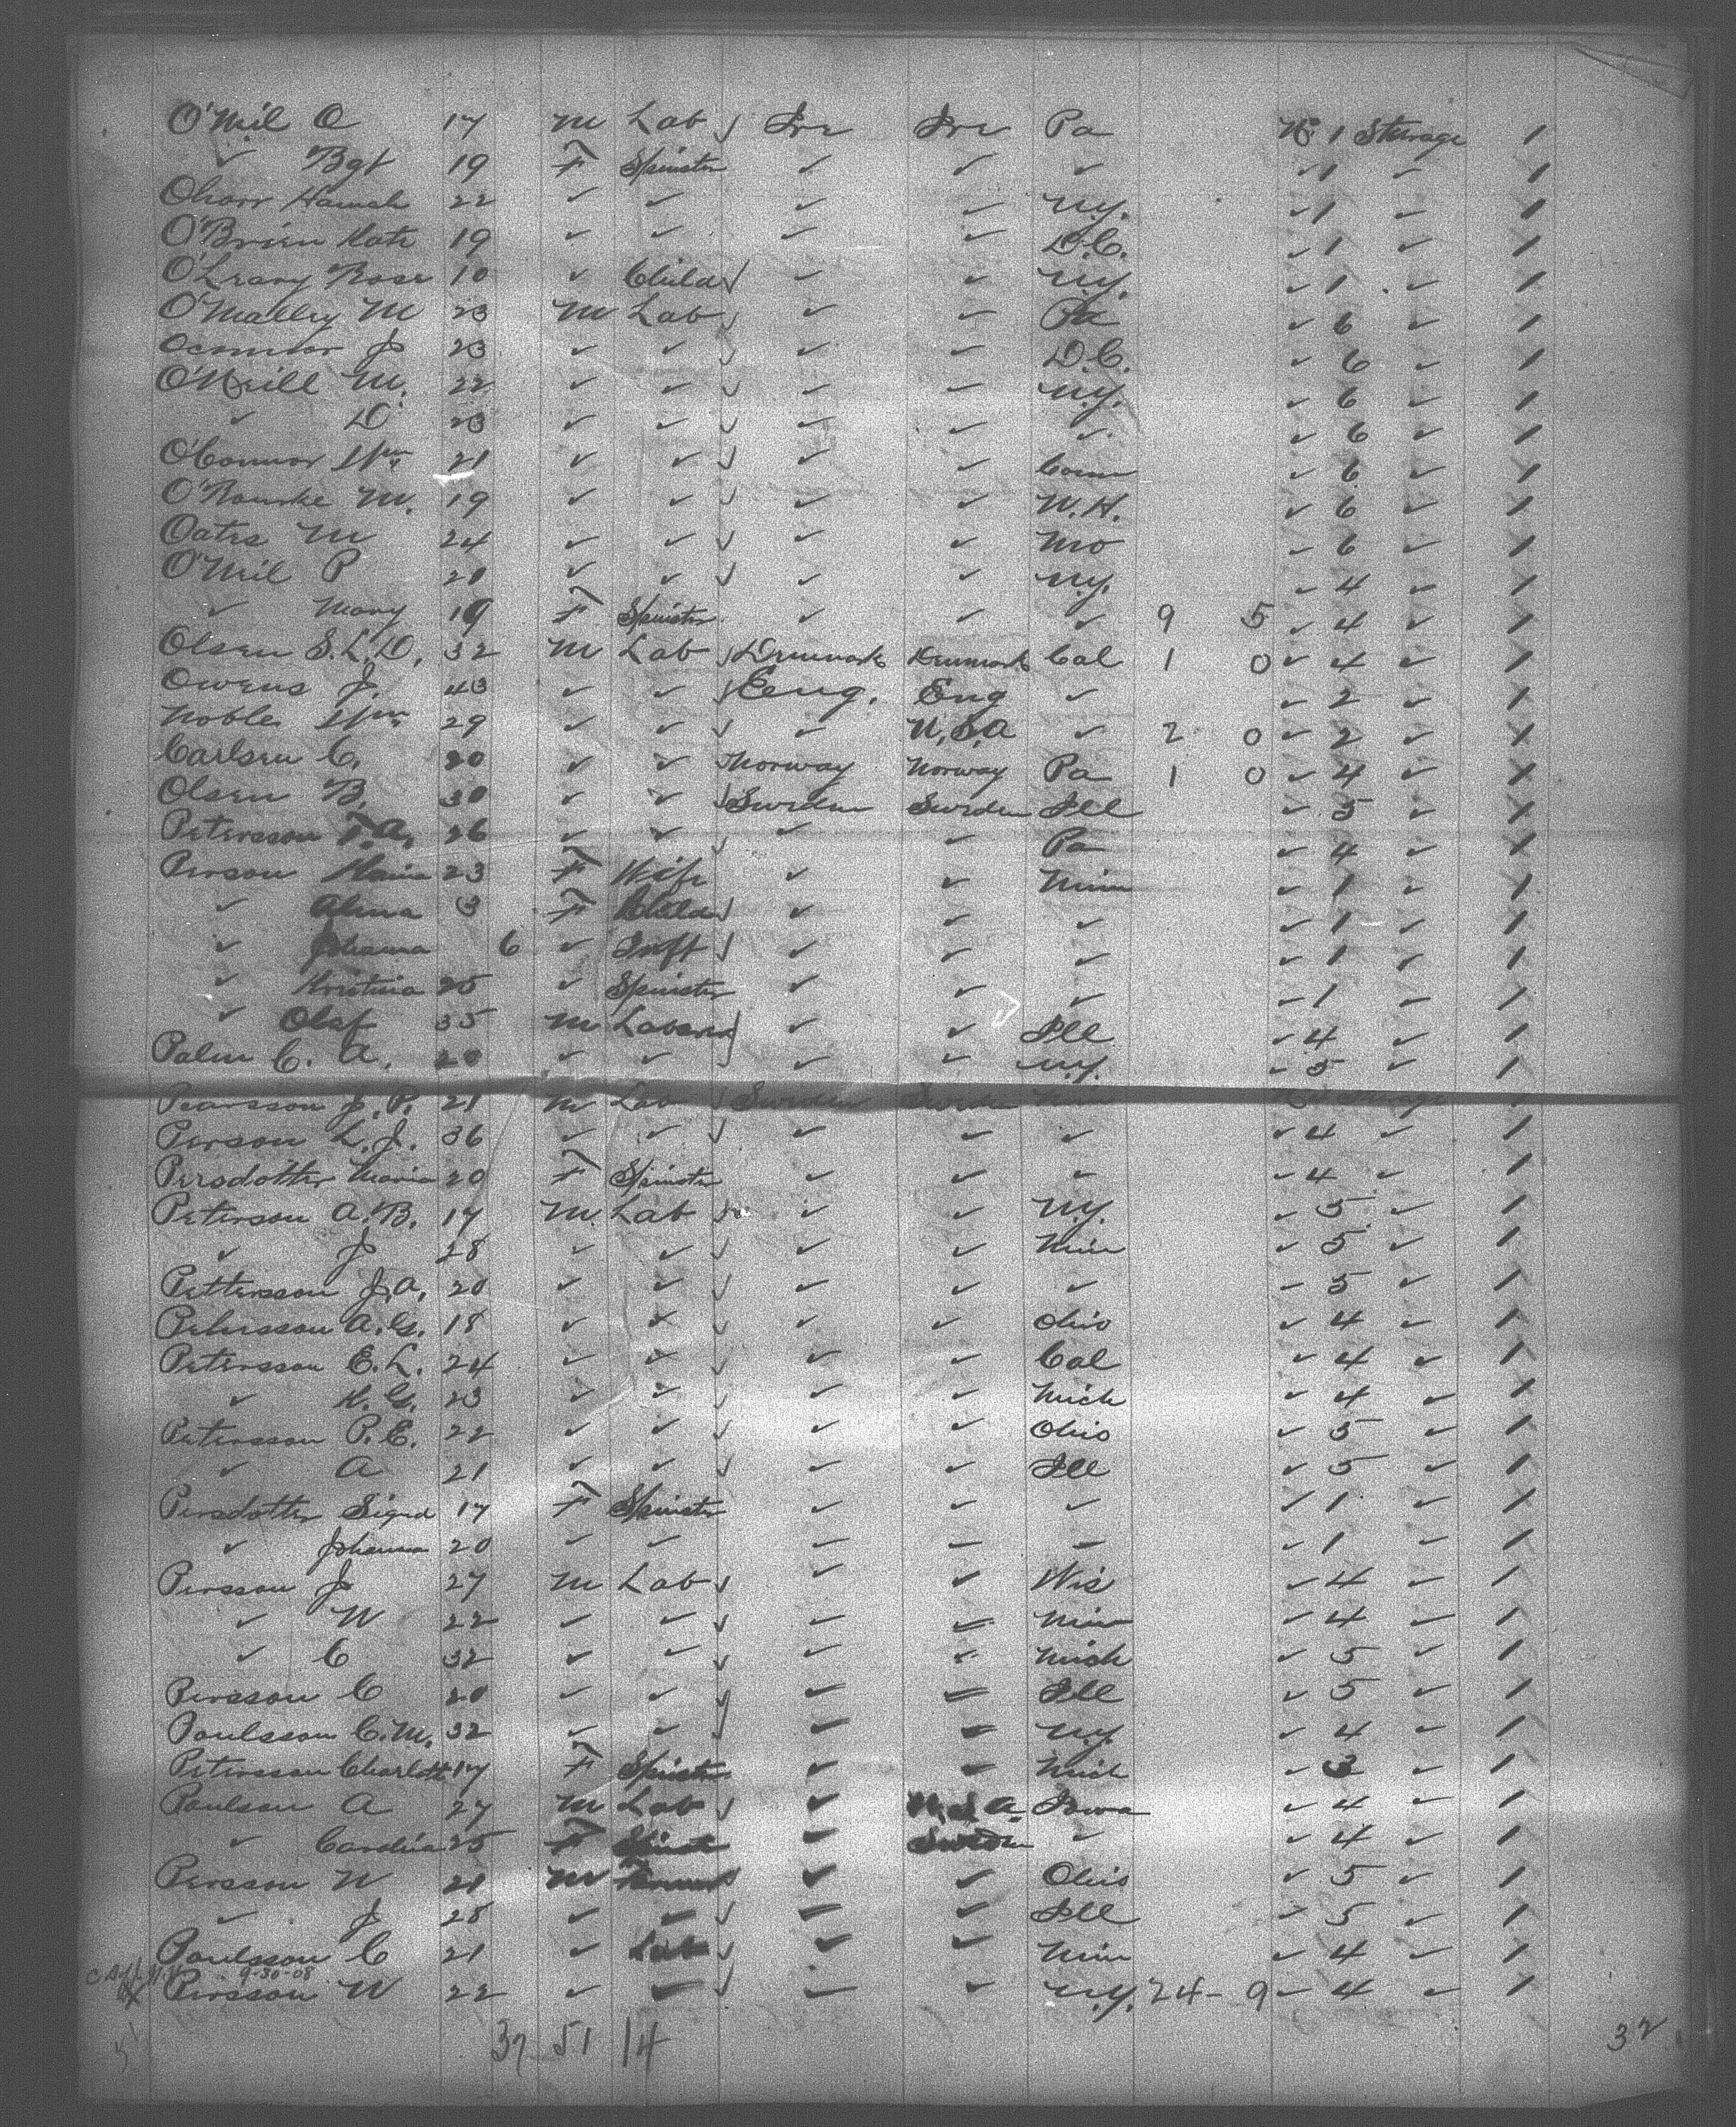 O'Neil O 17 M Lab Ire Ire Pa No 1 Steerage 1
✓ Bgt 19 F Spinster ✓ ✓ ✓ ✓ 1 ✓ 1
Hannah 22 ✓ ✓ ✓ ✓ N.Y. ✓ 1 ✓ 1
O'Brien Kate 19 ✓ ✓ ✓ ✓ D.C. ✓ 1 ✓ 1
O'Leary Rose 10 ✓ Child ✓ ✓ N.Y. ✓ 1 ✓ 1
O'Malley M 23 M Lab ✓ ✓ Pa ✓ 6 ✓ 1
Oconnor J 23 ✓ ✓ ✓ ✓ D.C. ✓ 6 ✓ 1
O'Neill M. 22 ✓ ✓ ✓ ✓ N.Y. ✓ 6 ✓ 1
✓ D 23 ✓ ✓ ✓ ✓ ✓ ✓ 6 ✓ 1
O'Connor Wm 21 ✓ ✓ ✓ ✓ Conn ✓ 6 ✓ 1
O'Rourke M. 19 ✓ ✓ ✓ ✓ N.H. ✓ 6 ✓ 1
Oates M 24 ✓ ✓ ✓ ✓ Mo ✓ 6 ✓ 1
O'Neil P 21 ✓ ✓ ✓ ✓ N.Y. ✓ 4 ✓ 1
✓ Mary 19 F Spinster ✓ ✓ ✓ 9 5 ✓ 4 ✓ 1
Olsen S.L.D. 32 M Lab Denmark Denmark Cal 1 0 ✓ 4 ✓ 1
Owens J. 43 ✓ ✓ Eeng. Eng ✓ ✓ 2 ✓ 1
Nobles Wm 29 ✓ ✓ ✓ U.S.A ✓ 2 0 ✓ 2 ✓ 1
Carlsen C. 20 ✓ ✓ Norway Norway Pa 1 0 ✓ 4 ✓ 1
Olsen B. 30 ✓ ✓ Sweden Sweden Ill ✓ 5 ✓ 1
Petersson F.A. 26 ✓ ✓ ✓ ✓ Pa ✓ 4 ✓ 1
Person Maria 23 F Wife ✓ ✓ Minn ✓ 1 ✓ 1
✓ Alma 3 F Child ✓ ✓ ✓ ✓ 1 ✓ 1
✓ Johanna 6 ✓ Inft ✓ ✓ ✓ ✓ 1 ✓ 1
✓ Kristina 25 ✓ Spinster ✓ ✓ ✓ ✓ 1 ✓ 1
✓ Olof 35 M Laborer ✓ ✓ Ill ✓ 4 ✓ 1
Palm C. A. 20 ✓ ✓ ✓ ✓ N.Y. ✓ 5 ✓ 1
Pearsson J.P. 21 M Lab Sweden Sweden Minn Steerage 1
Person L.J. 36 ✓ ✓ ✓ ✓ ✓ ✓ 4 ✓ 1
Persdotter Maria 20 F Spinster ✓ ✓ ✓ ✓ 4 ✓ 1
Peterson A.B. 17 M. Lab ✓ ✓ N.Y. ✓ 5 ✓ 1
✓ J 28 ✓ ✓ ✓ ✓ Minn ✓ 5 ✓ 1
Pettersson J.A. 20 ✓ ✓ ✓ ✓ ✓ ✓ 5 ✓ 1
Petersson A.G. 18 ✓ ✓ ✓ ✓ Ohio ✓ 4 ✓ 1
Petersson E.L. 24 ✓ ✓ ✓ ✓ Cal ✓ 4 ✓ 1
✓ K.G. 23 ✓ ✓ ✓ ✓ Mich ✓ 4 ✓ 1
Petersson P.E. 22 ✓ ✓ ✓ ✓ Ohio ✓ 5 ✓ 1
✓ A 21 ✓ ✓ ✓ ✓ Ill ✓ 5 ✓ 1
Persdotter Sigrd 17 F Spinster ✓ ✓ ✓ ✓ 1 ✓ 1
✓ Johanna 20 ✓ ✓ ✓ ✓ ✓ ✓ 1 ✓ 1
Persson J 27 M Lab ✓ ✓ Wis ✓ 4 ✓ 1
✓ N 22 ✓ ✓ ✓ ✓ Minn ✓ 4 ✓ 1
✓ C 32 ✓ ✓ ✓ ✓ Mich ✓ 5 ✓ 1
Persson C 20 ✓ ✓ ✓ ✓ Ill ✓ 5 ✓ 1
Poulsson C.M. 32 ✓ ✓ ✓ ✓ N.Y. ✓ 4 ✓ 1
Petersson Charlott 17 F Spinster ✓ ✓ Mich ✓ 3 ✓ 1
Paulson A 27 M Lab ✓ U.S.A. Iowa ✓ 4 ✓ 1
✓ Carolina 25 F Spinster ✓ Sweden ✓ ✓ 4 ✓ 1
Persson N 21 M Farmer ✓ ✓ Ohio ✓ 5 ✓ 1
✓ J 28 ✓ ✓ ✓ ✓ Ill ✓ 5 ✓ 1
Poulsson C 21 ✓ Lab ✓ ✓ Minn ✓ 4 ✓ 1
9-30-08
Persson N 22 ✓ ✓ ✓ ✓ N.Y. 24 - 9 ✓ 4 ✓ 1
37 51 14
32